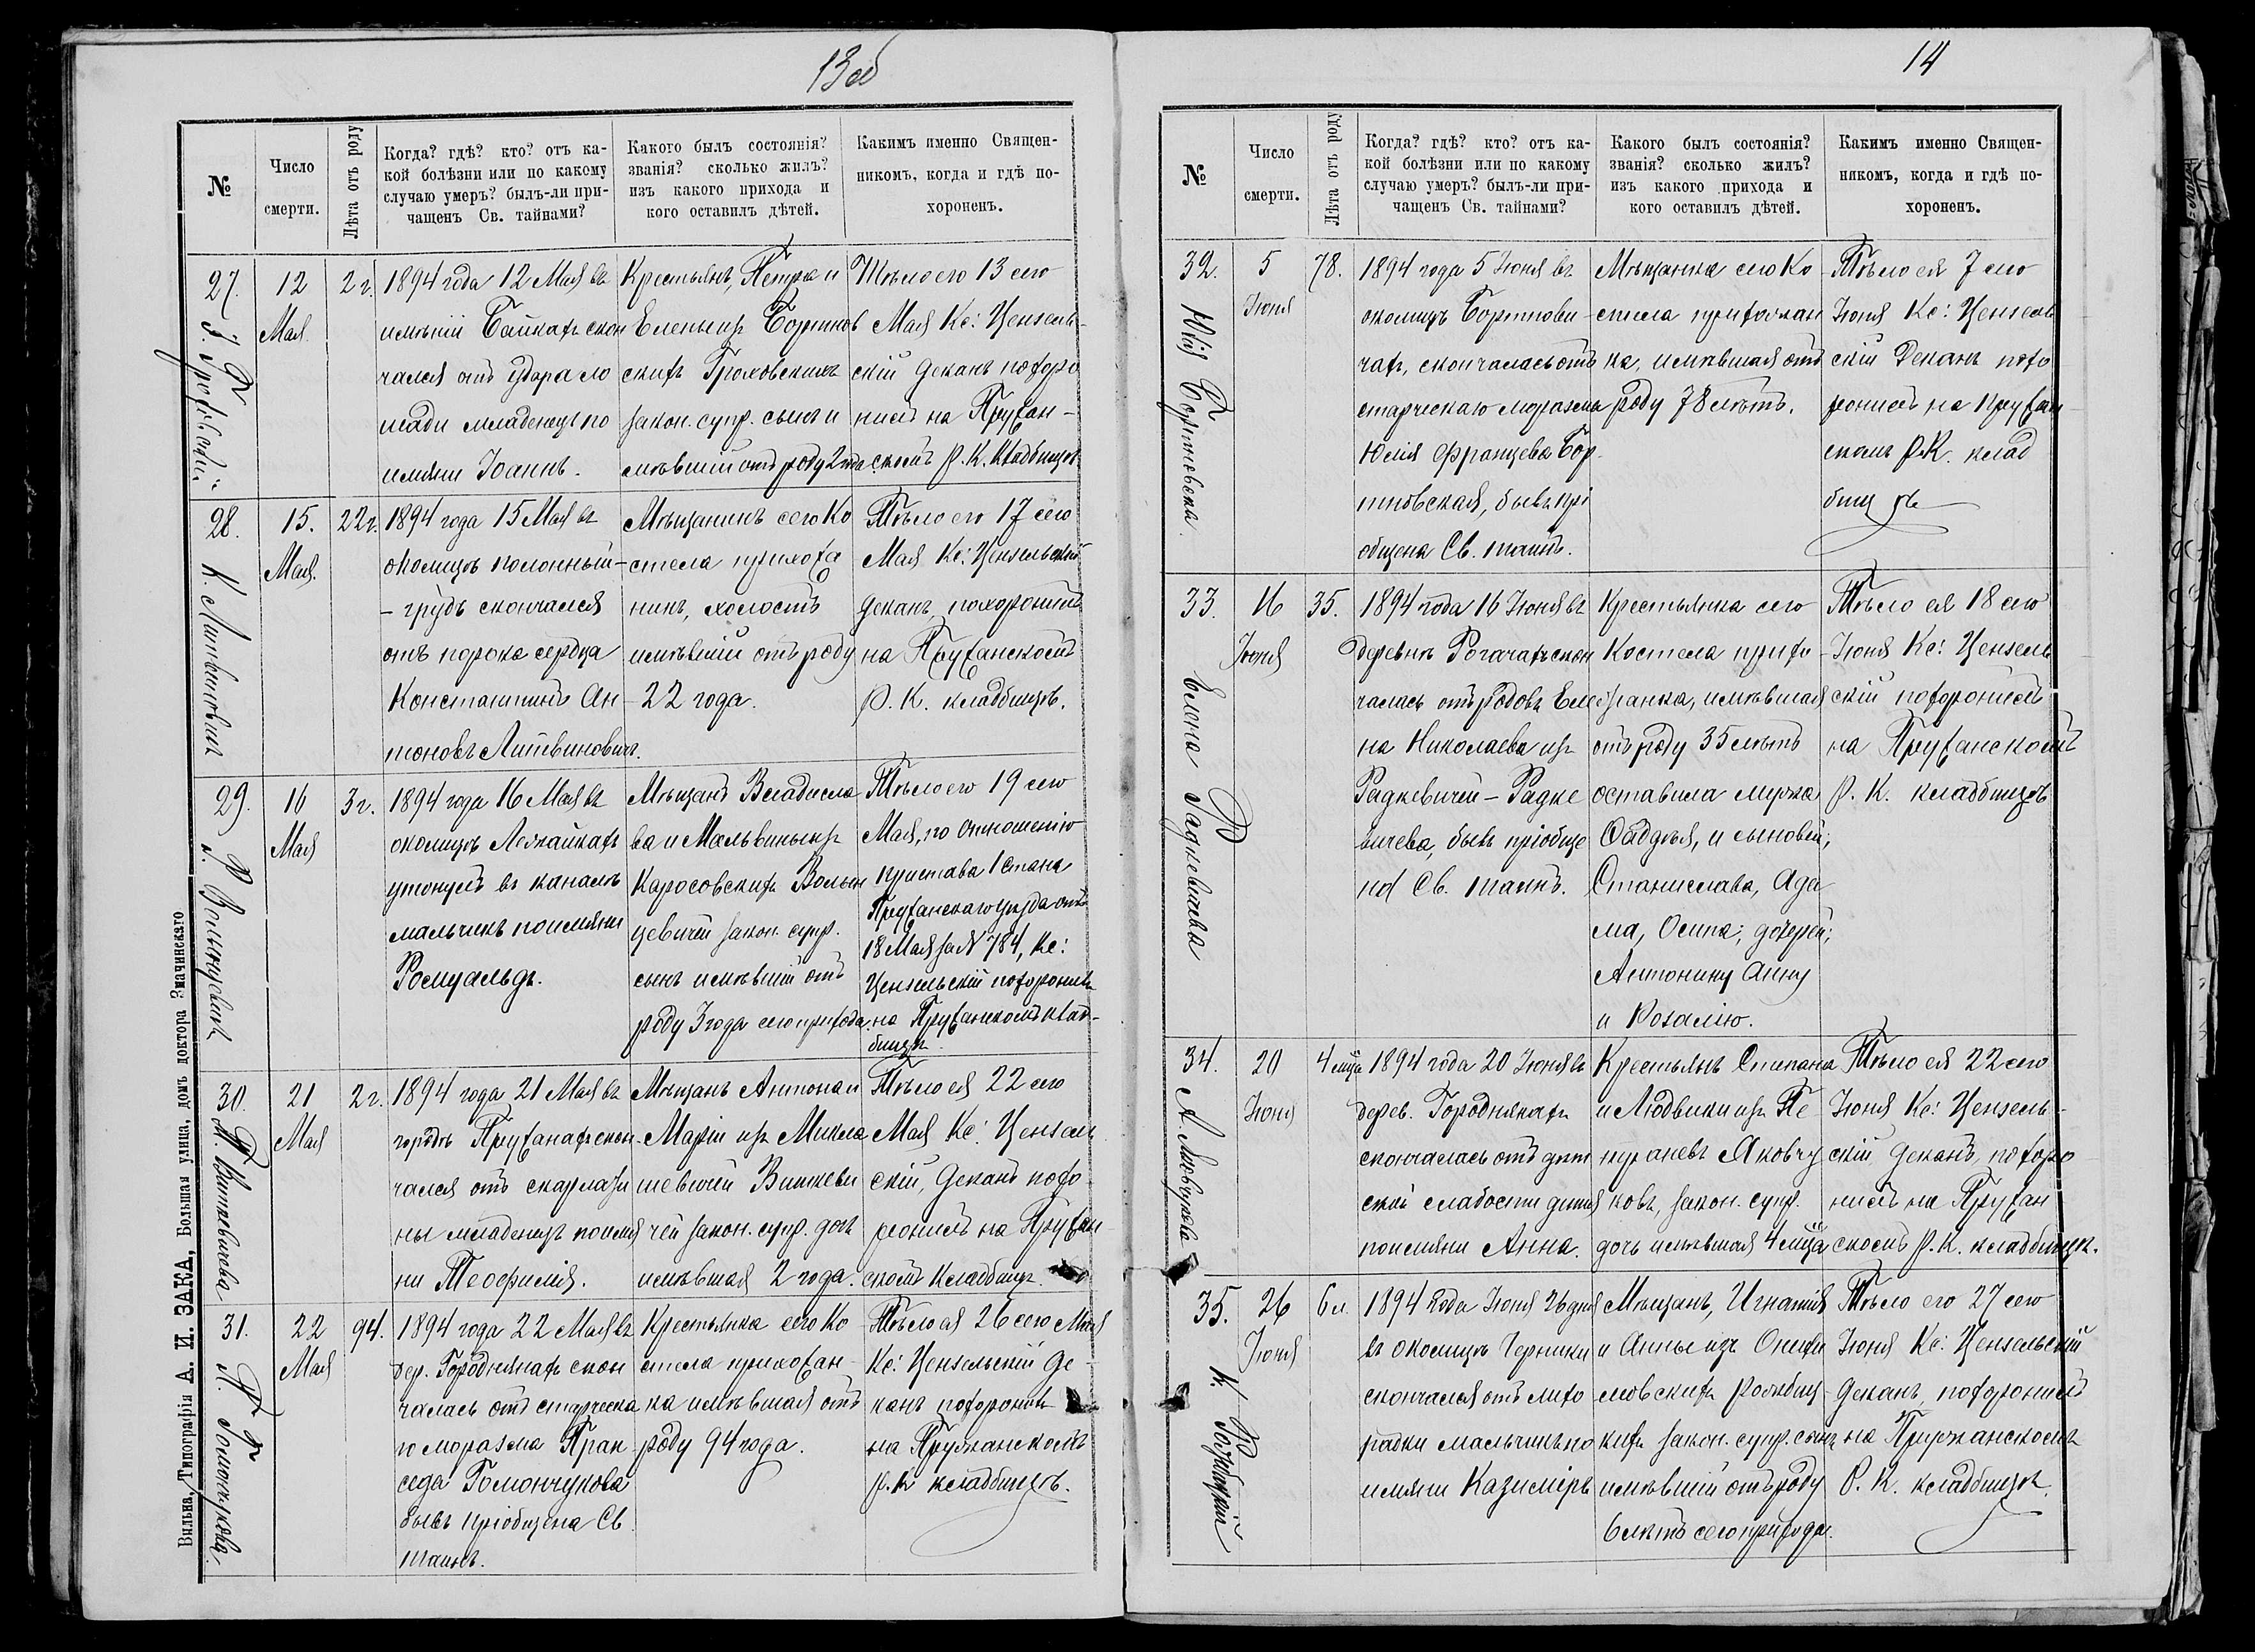 13 об
№
Число
смерти.
Лѣта отъ роду
Когда? гдѣ? кто? отъ ка-
кой болѣзни или по какому
случаю умеръ? былъ-ли при-
чащенъ Св. тайнами?
Какого былъ состоянія?
званія? сколько жилъ?
изъ какого прихода и
кого оставилъ дѣтей.
Какимъ именно Священ-
никомъ, когда и гдѣ по-
хороненъ.
27.
12
Мая.
2 г.
1894 года 12 Мая въ
имѣніи Байкахъ скон
чался отъ удара ло
шади младенецъ по
имяни Іоаннъ.
Крестьянъ, Петра и
Елены изъ
скихъ Гроховскихъ
закон. супр. сынъ и
мѣвшій отъ роду 2 года
Тѣло его 13 сего
Мая Кс: Цензель-
скій Деканъ похоро
нилъ на Пружан-
скомъ Р. К. Кладбищѣ
28.
К. Литвиновичъ
15.
Мая.
22 г.
1894 года 15 Мая въ
околицѣ полонный-
- грудъ скончался
отъ порока сердца
Константинъ Ан-
тоновъ Литвиновичъ.
Мѣщанинъ сего Ко
стела прихожа
нинъ, холостъ
имѣвшій отъ роду
22 года.
Тѣло его 17 сего
Мая Кс: Цензельскій
деканъ, похоронилъ
на Пружанскомъ
Р. К. кладбищѣ.
29.
Р. Волынцевичъ
16
Мая
3 г.
1894 года 16 Мая въ
околицѣ Лежайкахъ
утонулъ въ каналѣ
мальчикъ по имяни
Ромуальдъ.
Мѣщанъ Владисла
ва и Мальвины изъ
Каросовскихъ Волын
цевичей закон. супр.
сынъ имѣвшій отъ
роду 3 года сего прихода.
Тѣло его 19 сего
Мая, по отношенію
пристава 1 Стана
Пружанскаго уѣзда отъ
18 Мая за № 784, Кс:
Цензельскій похоронилъ
на Пружанскомъ клад-
бищѣ.
30.
Т. Винкевичева
21
Мая
2 г.
1894 года 21 Мая въ
городѣ Пружанахъ скон-
чался отъ скарлати
ны младенецъ по имя
ни Теофилія.
Мѣщанъ Антона и
Маріи изъ Микла
шевичей Винкеви
чей закон. супр. дочь
имѣвшая 2 года.
Тѣло ея 22 сего
Мая Кс: Цензель
скій, Деканъ похо
ронилъ на Пружан-
скомъ Кладбищѣ.
31.
22
Мая
94.
1894 года 22 Мая въ
дер. Городнянахъ скон
чалась отъ старческа
го моразма Прак
седа Гомончукова
бывъ пріобщена Св.
таинъ.
Крестьянка сего Ко
стела прихожан-
ка имѣвшая отъ
роду 94 года.
Тѣло ея 26 сего Мая
Кс: Цензельскій Де-
канъ похоронилъ
на Пружанскомъ
Р. К. кладбищѣ.
Вильна, Типографія А. И. ЗАКА, Большая улица, домъ доктора Змачинскаго
14
№
Число
смерти.
Лѣта отъ роду
Когда? гдѣ? кто? отъ ка-
кой болѣзни или по какому
случаю умеръ? былъ-ли при-
чащенъ Св. тайнами?
Какого былъ состоянія?
званія? сколько жилъ?
изъ какого прихода и
кого оставилъ дѣтей.
Какимъ именно Священ-
никомъ, когда и гдѣ по-
хороненъ.
32.
5
Іюня
78.
1894 года 5 Іюня въ
околицѣ Бортнови-
чахъ, скончалась отъ
старческаго моразма
Юлія Францева Бор-
тновская, бывъ прі
общена Св. таинъ.
Мѣщанка сего Ко
стела прихожан
ка, имѣвшая отъ
роду 78 лѣтъ.
Тѣло ея 7 сего
Іюня Кс: Цензель
скій Деканъ похо
ронилъ на Пружан-
скомъ Р. К. клад
бищѣ
33.
Елена Радкевичева
16
Іюня
35.
1894 года 16 Іюня въ
деревнѣ Рогачахъ скон
чалась отъ родовъ Еле
на Николаева изъ
Радкевичей - Радке
вичева, бывъ пріобще
на Св. таинъ.
Крестьянка сего
Костела прихо-
жанка, имѣвшая
отъ роду 35 лѣтъ
оставила мужа
Фаддѣя, и сыновей;
Станислава, Ада
ма, Осипа; дочерей;
Антонину Анну
и Розалію.
Тѣло ея 18 сего
Іюня Кс: Цензель
скій похоронилъ
на Пружанскомъ
Р. К. кладбищѣ
34.
20
Іюня
4 мца
1894 года 20 Іюня въ
дерев. Городнянахъ
скончалась отъ дѣт
ской слабости дитя
по имяни Анна.
Крестьянъ Степана
и Людвики изъ Пе-
ковъ, закон. супр.
дочь имѣвшая 4 мца
Тѣло ея 22 сего
Іюня Кс: Цензель-
скій деканъ, похоро
нилъ на Пружан
скомъ Р. К. кладбищѣ.
35.
26
Іюня
6 л.
1894 года Іюня 26 дня
въ околицѣ Черники
скончался отъ лихо
радки мальчикъ по
имяни Казиміръ
Мѣщанъ, Игнатія
и Анны изъ
кихъ закон. супр. сынъ
имѣвшій отъ роду
6 лѣтъ сего прихода.
Тѣло его 27 сего
Іюня Кс: Цензельскій
Деканъ похоронилъ
на Пружанскомъ
Р. К. кладбищѣ.